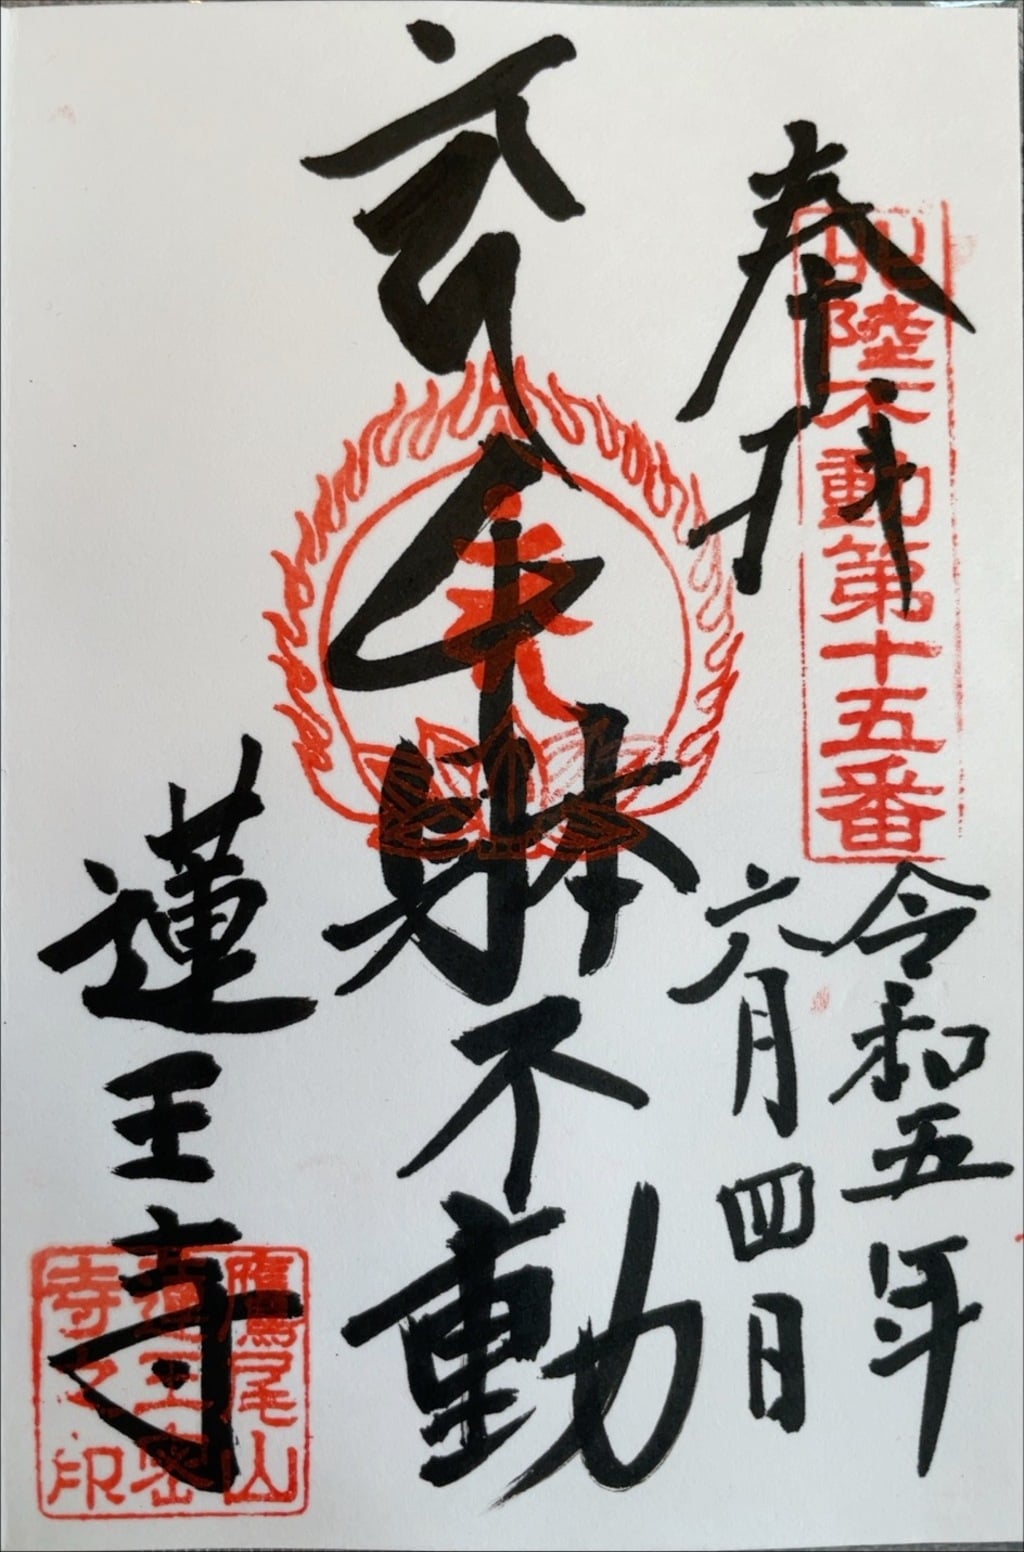 奉拝
北陸不動第十五番
令和五年
六月四日
躰不動
蓮王寺
鷹尾山
蓮王密
寺之印